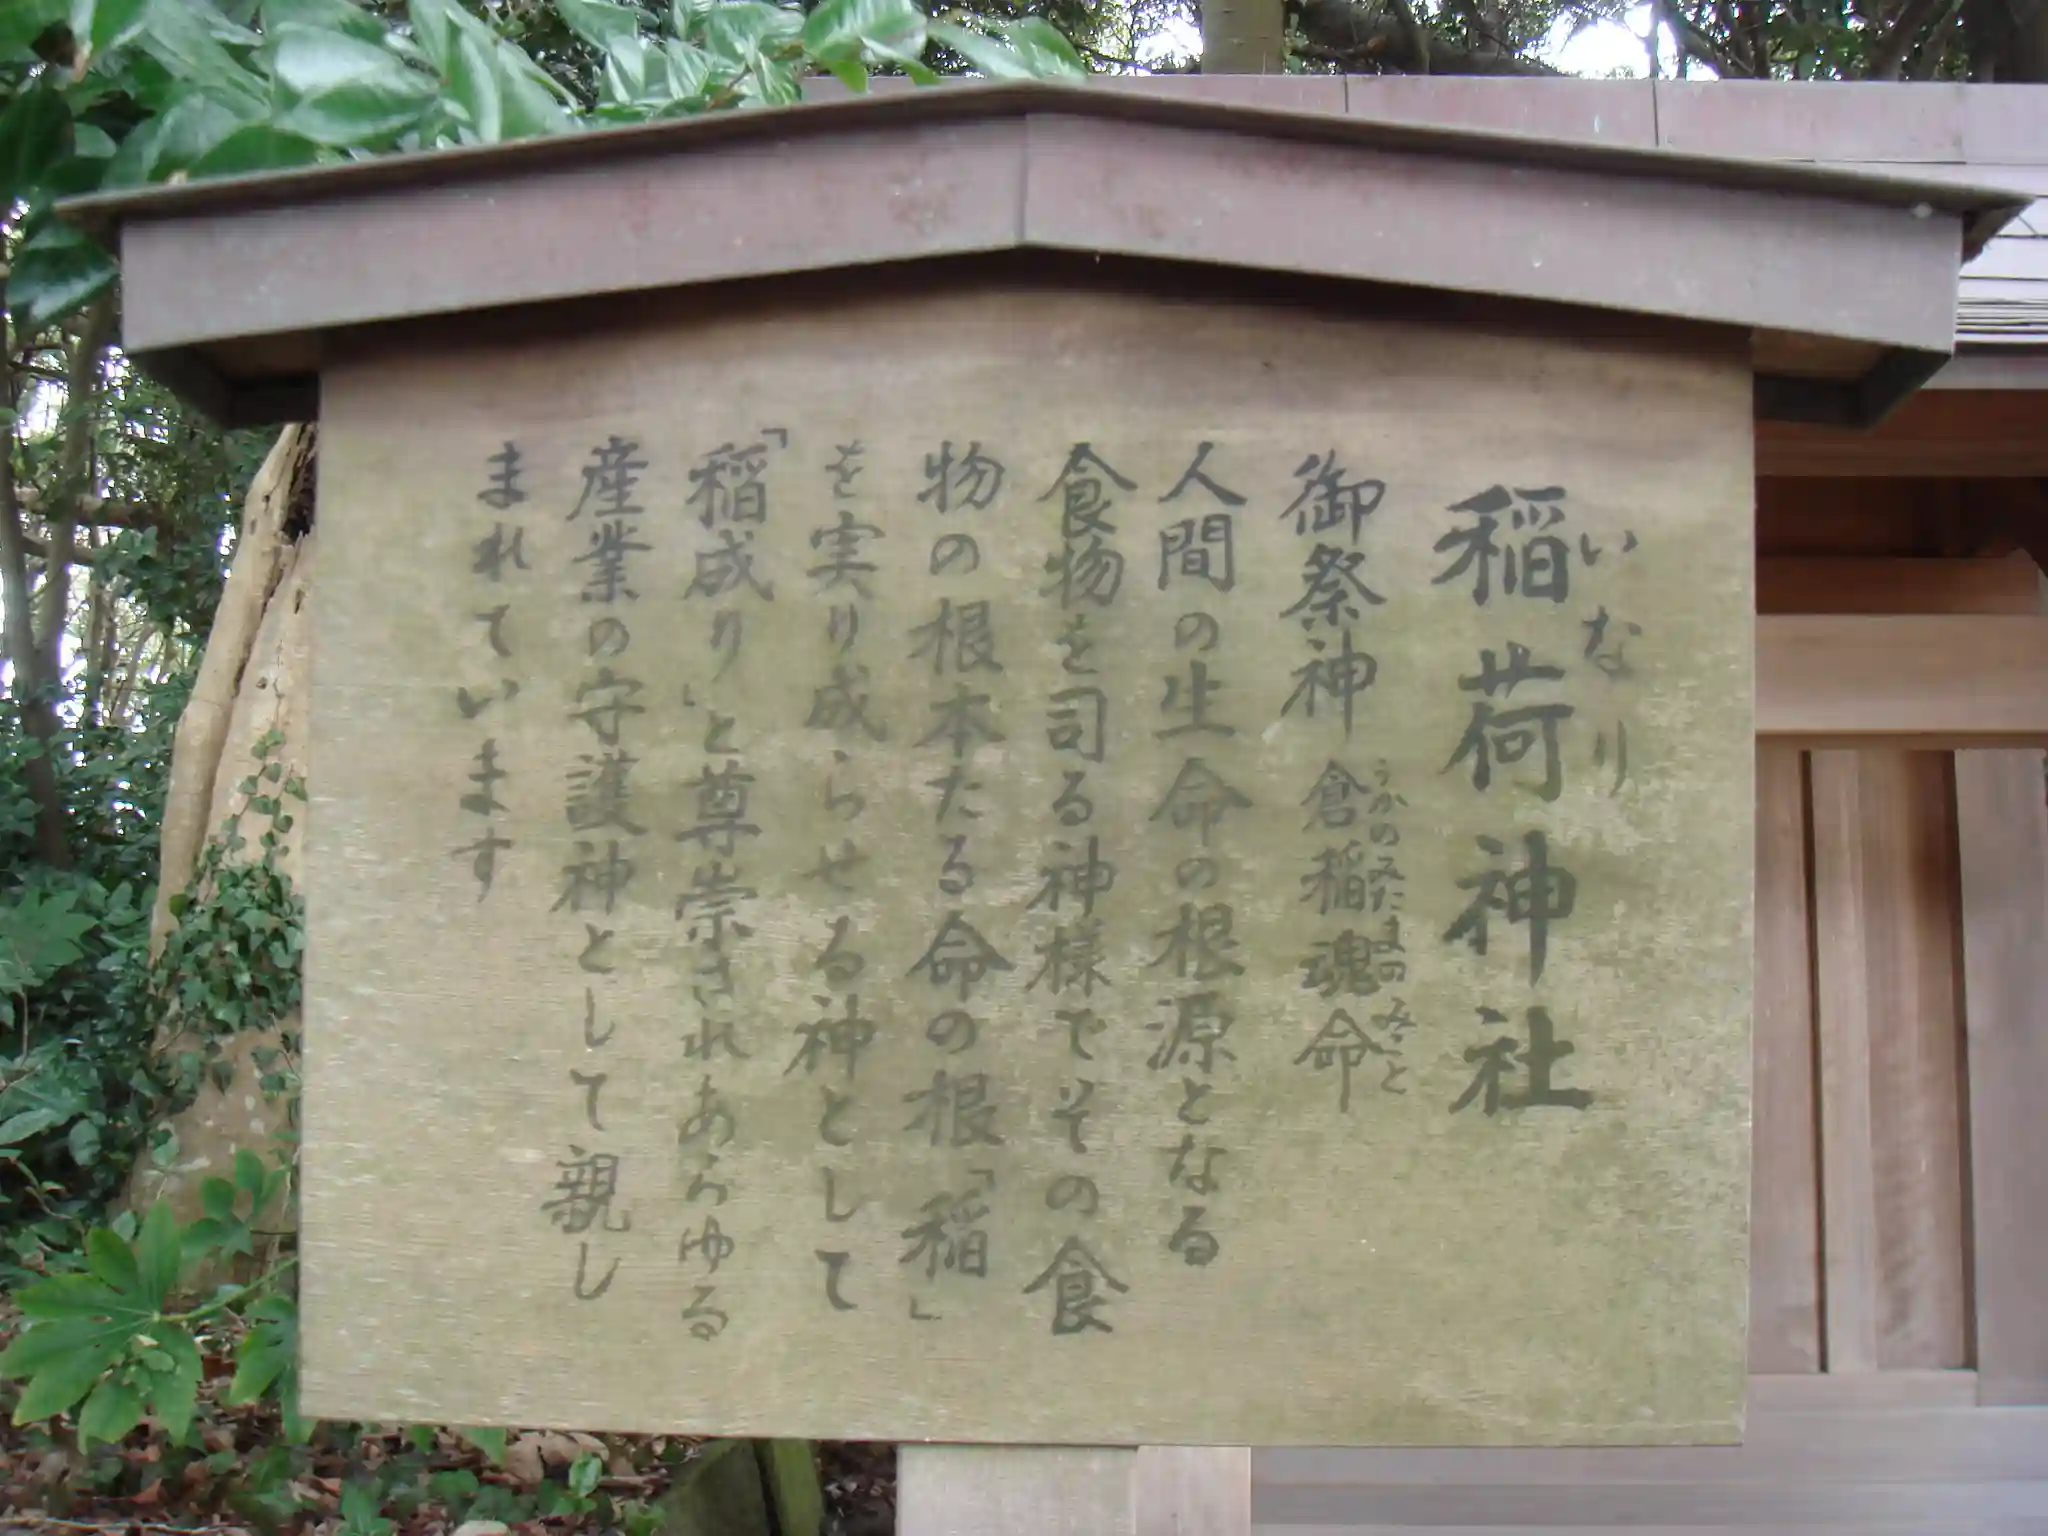 稲荷神社
いなり
御祭神 倉稲魂命
うかのみたまのみこと
人間の生命の根源となる
食物を司る神様でその食
物の根本たる命の根「稲」
を実り成らせる神として
「稲成り」と尊崇されあらゆる
産業の守護神として親し
まれています